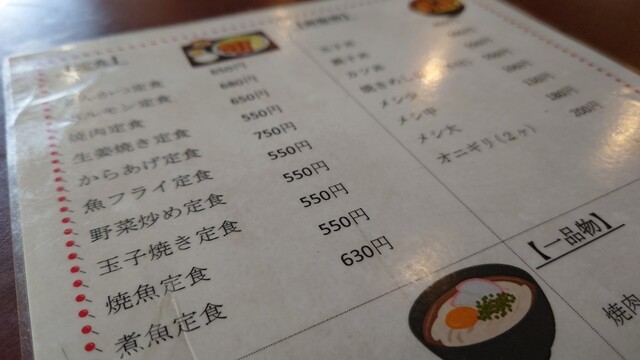 【定食】
とんかつ定食 850円
ホルモン定食 680円
焼肉定食 650円
生姜焼き定食 550円
からあげ定食 750円
魚フライ定食 550円
野菜炒め定食 550円
玉子焼き定食 550円
焼魚定食 550円
煮魚定食 630円
玉子丼
親子丼
カツ丼
焼きめし
メシ小
メシ中
メシ大 180円
オニギリ(2ヶ) 200円
【一品物】
焼肉